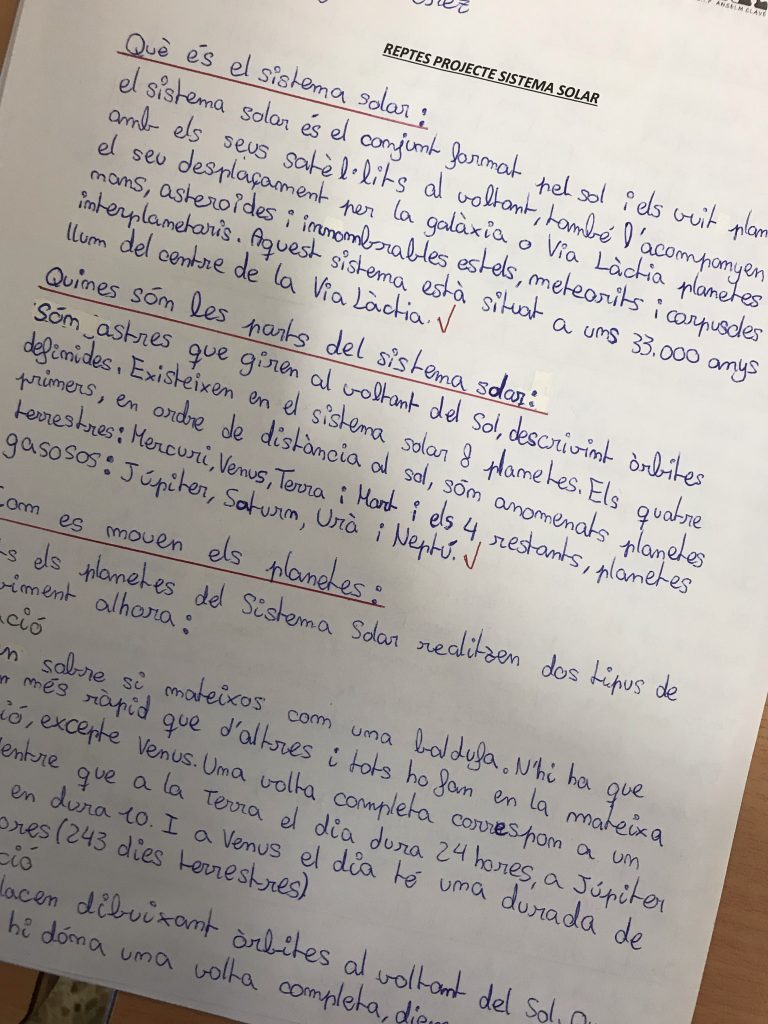 ANSELM CLAVÉ
REPTES PROJECTE SISTEMA SOLAR
Què és el sistema solar:
el sistema solar és el conjunt format pel sol i els vuit plan
amb els seus satèl·lits al voltant, també l'acompanyen
el seu desplaçament per la galàxia o Via Làctia planetes
nans, asteroides i innombrables estels, meteorits i corpuscles
interplanetaris. Aquest sistema està situat a uns 33.000 anys
llum del centre de la Via Làctia.
Quines són les parts del sistema solar:
Són astres que giren al voltant del Sol, descrivint òrbites
definides. Existeixen en el sistema solar 8 planetes. Els quatre
primers, en ordre de distància al sol, són anomenats planetes
terrestres: Mercuri, Venus, Terra i Mart i els 4 restants, planetes
gasosos: Júpiter, Saturn, Urà i Neptú.
Com es mouen els planetes:
ts els planetes del Sistema Solar realitzen dos tipus de
viment alhora:
ació
n sobre si mateixos com una baldufa. N'hi ha que
n més ràpid que d'altres i tots ho fan en la mateixa
ió, excepte Venus. Una volta completa correspon a un
entre que a la Terra el dia dura 24 hores, a Júpiter
en dura 10. I a Venus el dia té una durada de
ores (243 dies terrestres)
ció
lacen dibuixant òrbites al voltant del Sol.
hi dóna una volta completa, diem